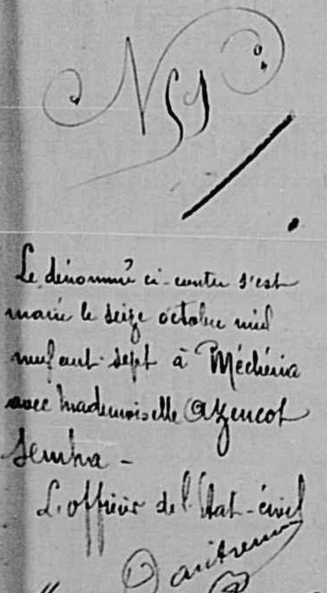 Le dénommé ci-contre s'est
marié le seize octobre mil
neuf cent sept à Méchéria
avec Mademoiselle Azencot
Semha -
L'officier de l'État-civil